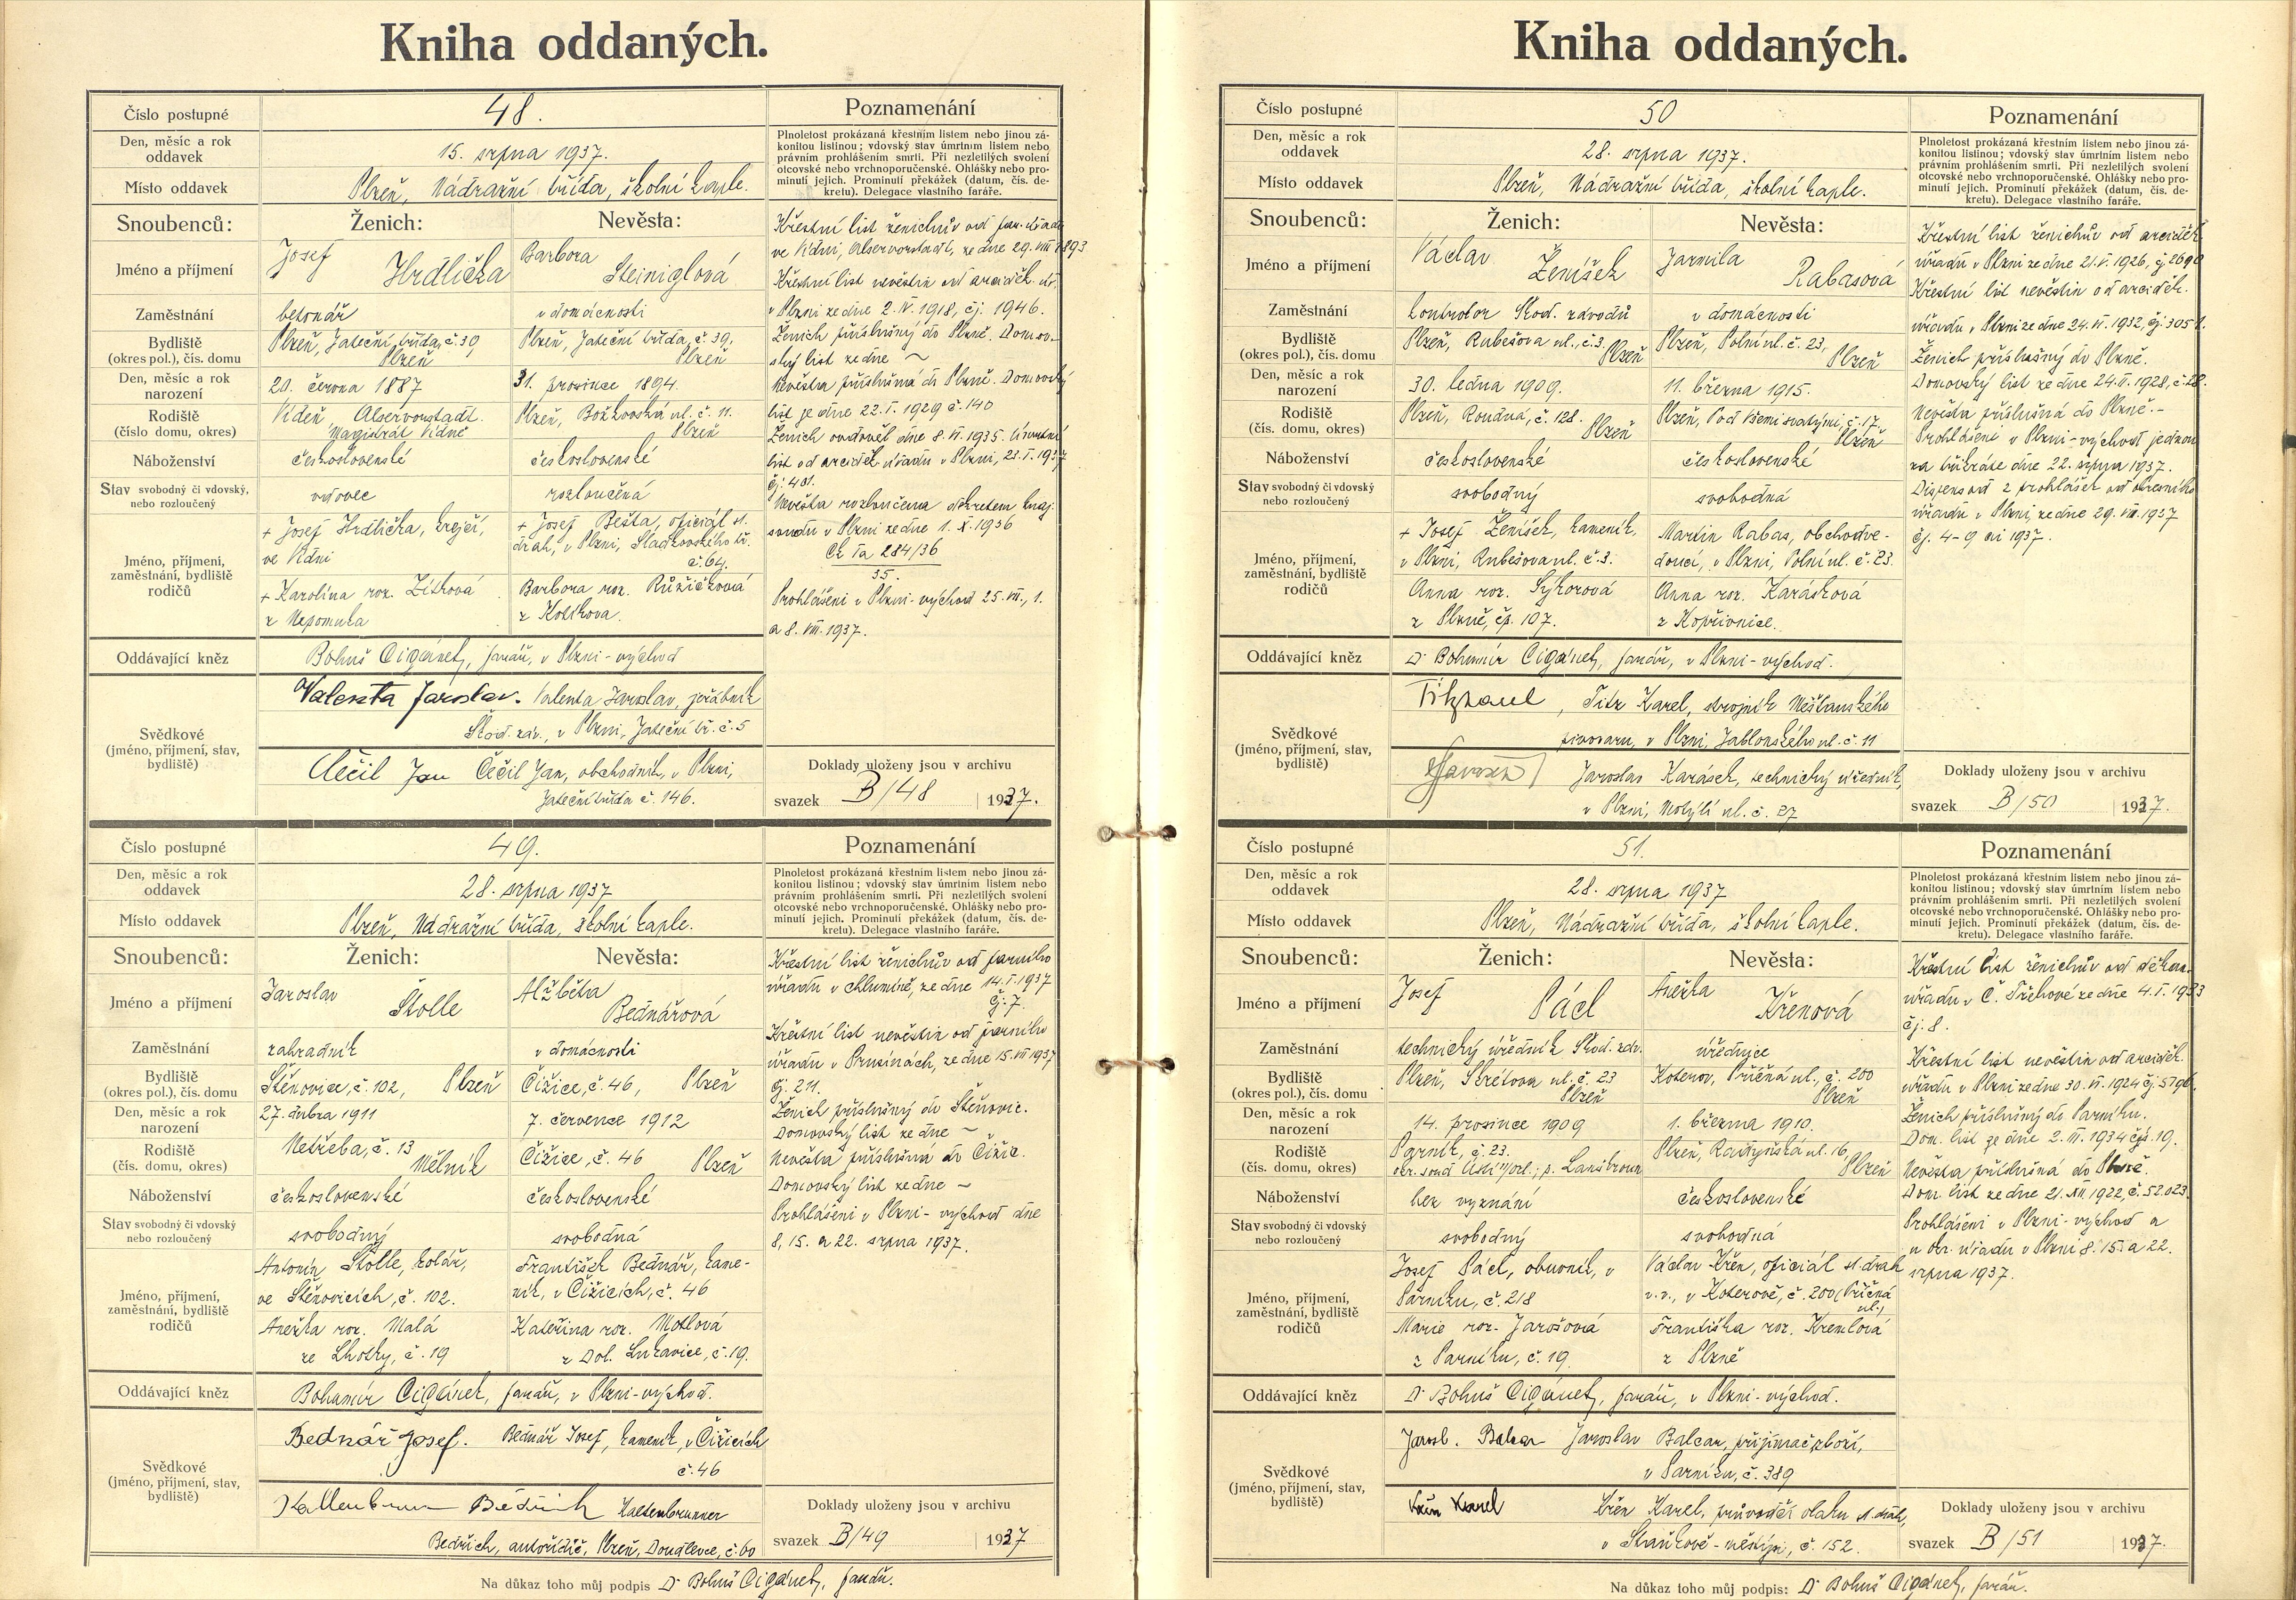 Kniha oddaných.
Číslo postupné
48.
Den, měsíc a rok oddavek
15. srpna 1937.
Místo oddavek
Plzeň, Nádražní třída, školní kaple.
Poznamenání
Plnoletost prokázaná křestním listem nebo jinou zá-
konitou listinou; vdovský stav úmrtním listem nebo
právním prohlášením smrti. Při nezletilých svolení
otcovské nebo vrchnoporučenské. Ohlášky nebo pro-
minutí jejich. Prominutí překážek (datum, čís. de-
kretu). Delegace vlastního faráře.
Snoubenců:
Ženich:
Nevěsta:
Jméno a příjmení
Josef
Hrdlička
Barbora
Steiniglová
Zaměstnání
betonář
v domácnosti
Bydliště
(okres pol.), čís. domu
Plzeň, Jateční třída, č. 39,
Plzeň
Plzeň, Jateční třída, č. 39,
Plzeň
Den, měsíc a rok
narození
20. června 1887
31. prosince 1894.
Rodiště
(číslo domu, okres)
Vídeň, Alservorstadt.
Magistrát Vídně
Plzeň, Božkovská ul. č. 11.
Plzeň
Náboženství
československé
československé
Stav svobodný či vdovský,
nebo rozloučený
vdovec
rozloučená
Jméno, příjmení,
zaměstnání, bydliště
rodičů
+ Josef Hrdlička, krejčí,
ve Vídni
+ Karolina roz. Zítková
z Nepomuka
+ Josef Bešta, oficiál st.
drah, v Plzni, Sladkovského tř.
č. 64.
Barbora roz. Růžičková
z Kolkova.
Křestní list ženichův od far. úřadu
ve Vídni, Alservorstadt, ze dne 29. VIII. 1893.
Křestní list nevěstin od arciděk. úř.
v Plzni ze dne 2. IV. 1918, čj. 1946.
Ženich příslušný do Plzně. Domov-
ský list ze dne ~
Nevěsta příslušná do Plzně. Domovský
list ze dne 22. I. 1929 č. 140
Ženich ovdověl dne 8. VI. 1935. Úmrtní
list od arciděk. úřadu v Plzni, 23. I. 1937
čj. 401.
Nevěsta rozloučena dekretem kraj.
soudu v Plzni ze dne 1. X. 1936
Ck Va 284/36
35.
Prohlášeni v Plzni-východ 25. VII., 1.
a 8. VIII. 1937.
Oddávající kněz
Bohuš Cigánek, farář, v Plzni-východ
Svědkové
(jméno, příjmení, stav,
bydliště)
Valenta Jaroslav. Valenta Jaroslav, jeřábník
Škod. záv., v Plzni, Jateční tř. č. 5
Čečil Jan Čečil Jan, obchodník, v Plzni,
Jateční třída č. 146.
Doklady uloženy jsou v archivu
svazek B/48 1937.
Číslo postupné
49.
Den, měsíc a rok
oddavek
28. srpna 1937
Místo oddavek
Plzeň, Nádražní třída, školní kaple.
Poznamenání
Plnoletost prokázaná křestním listem nebo jinou zá-
konitou listinou; vdovský stav úmrtním listem nebo
právním prohlášením smrti. Při nezletilých svolení
otcovské nebo vrchnoporučenské. Ohlášky nebo pro-
minutí jejich. Prominutí překážek (datum, čís. de-
kretu). Delegace vlastního faráře.
Snoubenců:
Ženich:
Nevěsta:
Jméno a příjmení
Jaroslav
Štolle
Alžběta
Bednářová
Zaměstnání
zahradník
v domácnosti
Bydliště
(okres pol.), čís. domu
Štěnovice, č. 102, Plzeň
Čižice, č. 46, Plzeň
Den, měsíc a rok
narození
27. dubna 1911
7. července 1912
Rodiště
(čís. domu, okres)
Netřeba, č. 13
Mělník
Čižice, č. 46 Plzeň
Náboženství
československé
československé
Stav svobodný či vdovský
nebo rozloučený
svobodný
svobodná
Jméno, příjmení,
zaměstnání, bydliště
rodičů
Antonín Štolle, kolář,
ve Štěnovicích, č. 102.
Anežka roz. Malá
ze Lhotky, č. 19
František Bednář, kame-
ník, v Čižicích, č. 46
Kateřina roz. Motlová
z Dol. Lukavice, č. 19.
Křestní list ženichův od farního
úřadu v Chlumíně, ze dne 14. I. 1937
čj. 7.
Křestní list nevěstin od farního
úřadu v Prusinách, ze dne 15. VII 1937
čj. 211.
Ženich příslušný do Štěnovic.
Domovský list ze dne ~
Nevěsta příslušná do Čižic.
Domovský list ze dne ~
Prohlášeni v Plzni-východ dne
8, 15. a 22. srpna 1937.
Oddávající kněz
Bohumír Cigánek, farář, v Plzni-východ.
Svědkové
(jméno, příjmení, stav,
bydliště)
Bednář Josef. Bednář Josef, kameník, v Čižicích
č. 46
Kaltenbrunner Bedřich Kaltenbrunner
Bedřich, autořidič, Plzeň, Doudlevce, č. 60
Doklady uloženy jsou v archivu
svazek B/49 1937
Na důkaz toho můj podpis Dr Bohuš Cigánek, farář.
Kniha oddaných.
Číslo postupné
50
Den, měsíc a rok
oddavek
28. srpna 1937.
Místo oddavek
Plzeň, Nádražní třída, školní kaple.
Poznamenání
Plnoletost prokázaná křestním listem nebo jinou zá-
konitou listinou; vdovský stav úmrtním listem nebo
právním prohlášením smrti. Při nezletilých svolení
otcovské nebo vrchnoporučenské. Ohlášky nebo pro-
minutí jejich. Prominutí překážek (datum, čís. de-
kretu). Delegace vlastního faráře.
Snoubenců:
Ženich:
Nevěsta:
Jméno a příjmení
Václav
Ženíšek
Jarmila
Rabasová
Zaměstnání
kontrolor Škod. závodů
v domácnosti
Bydliště
(okres pol.), čís. domu
Plzeň, Rubešova ul., č. 3.
Plzeň
Plzeň, Polní ul. č. 23,
Plzeň
Den, měsíc a rok
narození
30. ledna 1909.
11. března 1915.
Rodiště
(čís. domu, okres)
Plzeň, Roudná, č. 128.
Plzeň
Plzeň, Pod Všemi svatými, č. 17.
Plzeň
Náboženství
československé
československé
Stav svobodný či vdovský
nebo rozloučený
svobodný
svobodná
Jméno, příjmení,
zaměstnání, bydliště
rodičů
+ Josef Ženíšek, kameník,
v Plzni, Rubešova ul. č. 3.
Anna roz. Sýkorová
z Plzně, čp. 107.
Martin Rabas, obchodve-
doucí, v Plzni, Polní ul. č. 23.
Anna roz. Karásková
z Kopřivnice.
Křestní list ženichův od arciděk.
úřadu v Plzni ze dne 21. V. 1926, čj. 2690
Křestní list nevěstin od arciděk.
úřadu v Plzni ze dne 24. VI. 1932, čj. 3051.
Ženich příslušný do Plzně.
Domovský list ze dne 24. II. 1928, č. 28.
Nevěsta příslušná do Plzně.-
Prohlášeni v Plzni-východ jednou
za třikráte dne 22. srpna 1937.
Dispens od 2 prohlášek od okresního
úřadu v Plzni, ze dne 29. VII. 1937
čj. 4-9 ai 1937.
Oddávající kněz
Dr Bohumír Cigánek, farář, v Plzni-východ.
Svědkové
(jméno, příjmení, stav,
bydliště)
Titz Karel, Titz Karel, strojník Měšťanského
pivovaru, v Plzni, Jablonského ul. č. 11
Jaroslav Karásek, technický úředník,
v Plzni, Motýlí ul. č. 27
Doklady uloženy jsou v archivu
svazek B/50 1937.
Číslo postupné
51.
Den, měsíc a rok
oddavek
28. srpna 1937
Místo oddavek
Plzeň, Nádražní třída, školní kaple.
Poznamenání
Plnoletost prokázaná křestním listem nebo jinou zá-
konitou listinou; vdovský stav úmrtním listem nebo
právním prohlášením smrti. Při nezletilých svolení
otcovské nebo vrchnoporučenské. Ohlášky nebo pro-
minutí jejich. Prominutí překážek (datum, čís. de-
kretu). Delegace vlastního faráře.
Snoubenců:
Ženich:
Nevěsta:
Jméno a příjmení
Josef
Pácl
Anežka
Křenová
Zaměstnání
technický úředník Škod. záv.
úřednice
Bydliště
(okres pol.), čís. domu
Plzeň, Škrétova ul. č. 23
Plzeň
Koterov, Příčná ul., č. 200
Plzeň
Den, měsíc a rok
narození
14. prosince 1909
1. března 1910.
Rodiště
(čís. domu, okres)
Parník, č. 23.
okr. soud Ústí n/orl.; p. Lanškroun
Plzeň, Radyňská ul. 16,
Plzeň
Náboženství
bez vyznání
československé
Stav svobodný či vdovský
nebo rozloučený
svobodný
svobodná
Jméno, příjmení,
zaměstnání, bydliště
rodičů
Josef Pácl, obuvník, v
Parníku, č. 218
Marie roz. Jarošová
z Parníku, č. 19.
Václav Křen, oficiál st. drah
v.v., v Koterově, č. 200 (Příčná
ul.)
Františka roz. Krenlová
z Plzně
Křestní list ženichův od děkan.
úřadu v Č. Třebové ze dne 4. I. 1933
čj. 8.
Křestní list nevěstin od arciděk.
úřadu v Plzni ze dne 30. VI. 1924 čj. 5796.
Ženich příslušný do Parníku.
Dom. list ze dne 2. III. 1934 čjs. 19.
Nevěsta příslušná do Plzně.
Dom. list ze dne 21. XII. 1922, č. 52.023.
Prohlášeni v Plzni-východ a
u okr. úřadu v Plzni 8. 15. a 22.
srpna 1937.
Oddávající kněz
Dr Bohuš Cigánek, farář, v Plzni-východ.
Svědkové
(jméno, příjmení, stav,
bydliště)
Jarosl. Balcar Jaroslav Balcar, přijímač zboží,
v Parníku, č. 389
Křen Karel Křen Karel, průvodčí vlaku st. drah,
v Staňkově-městys, č. 152.
Doklady uloženy jsou v archivu
svazek B/51 1937.
Na důkaz toho můj podpis: Dr Bohuš Cigánek, farář.